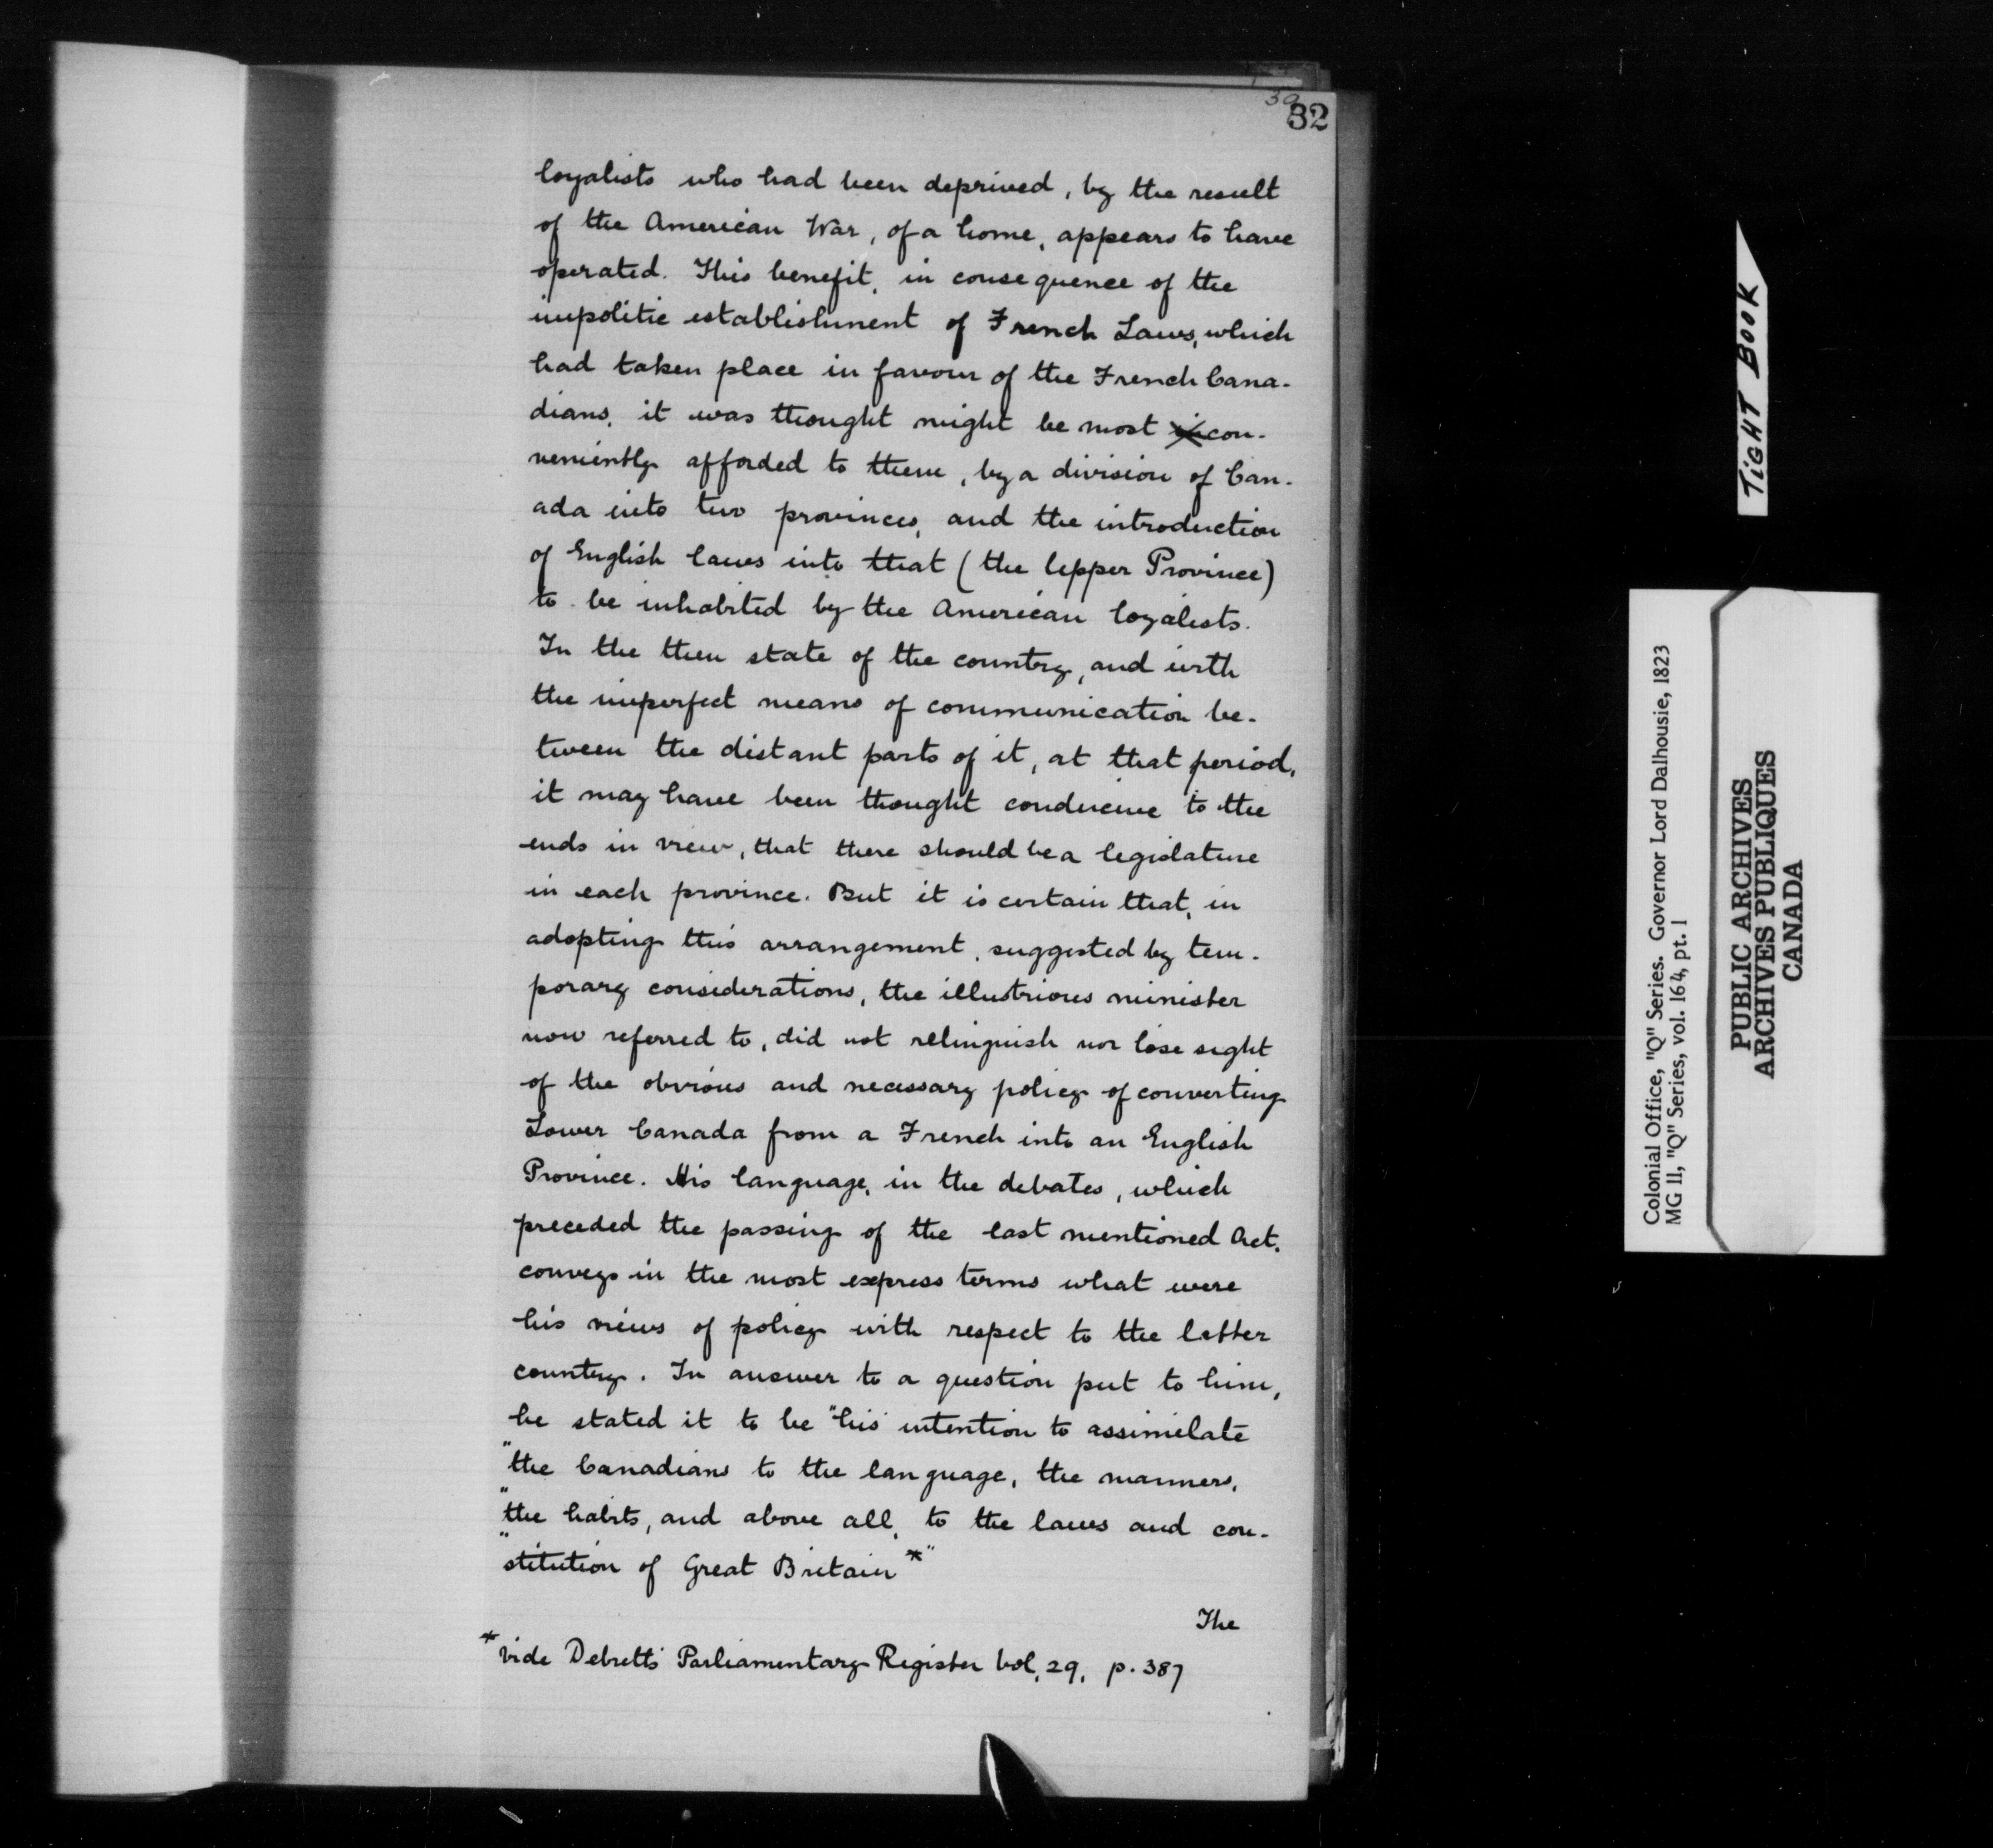 30
32
loyalists who had been deprived, by the result
of the American War, of a home, appears to have
operated. This benefit, in consequence of the
impolitic establishment of French Laws, which
had taken place in favour of the French Cana-
dians, it was thought might be most incon-
veniently afforded to them, by a division of Can-
ada into two provinces, and the introduction
of English laws into that (the Upper Province)
to be inhabited by the American loyalists.
In the then state of the country, and with
the imperfect means of communication be-
tween the distant parts of it, at that period,
it may have been thought conducive to the
ends in view, that there should be a legislature
in each province. But it is certain that, in
adopting this arrangement, suggested by tem-
porary considerations, the illustrious minister
now referred to, did not relinquish nor lose sight
of the obvious and necessary policy of converting
Lower Canada from a French into an English
Province. His language, in the debates, which
preceded the passing of the last mentioned Act,
conveys in the most express terms what were
his views of policy with respect to the latter
country. In answer to a question put to him,
he stated it to be "his intention to assimilate
"the Canadians to the language, the manners,
"the habits, and above all, to the laws and con-
"stitution of Great Britain *"
The
* Vide Debretts Parliamentary Register Vol. 29, p. 387
TIGHT BOOK
Colonial Office, "Q" Series. Governor Lord Dalhousie, 1823
MG 11, "Q" Series, vol. 164, pt. 1
PUBLIC ARCHIVES
ARCHIVES PUBLIQUES
CANADA